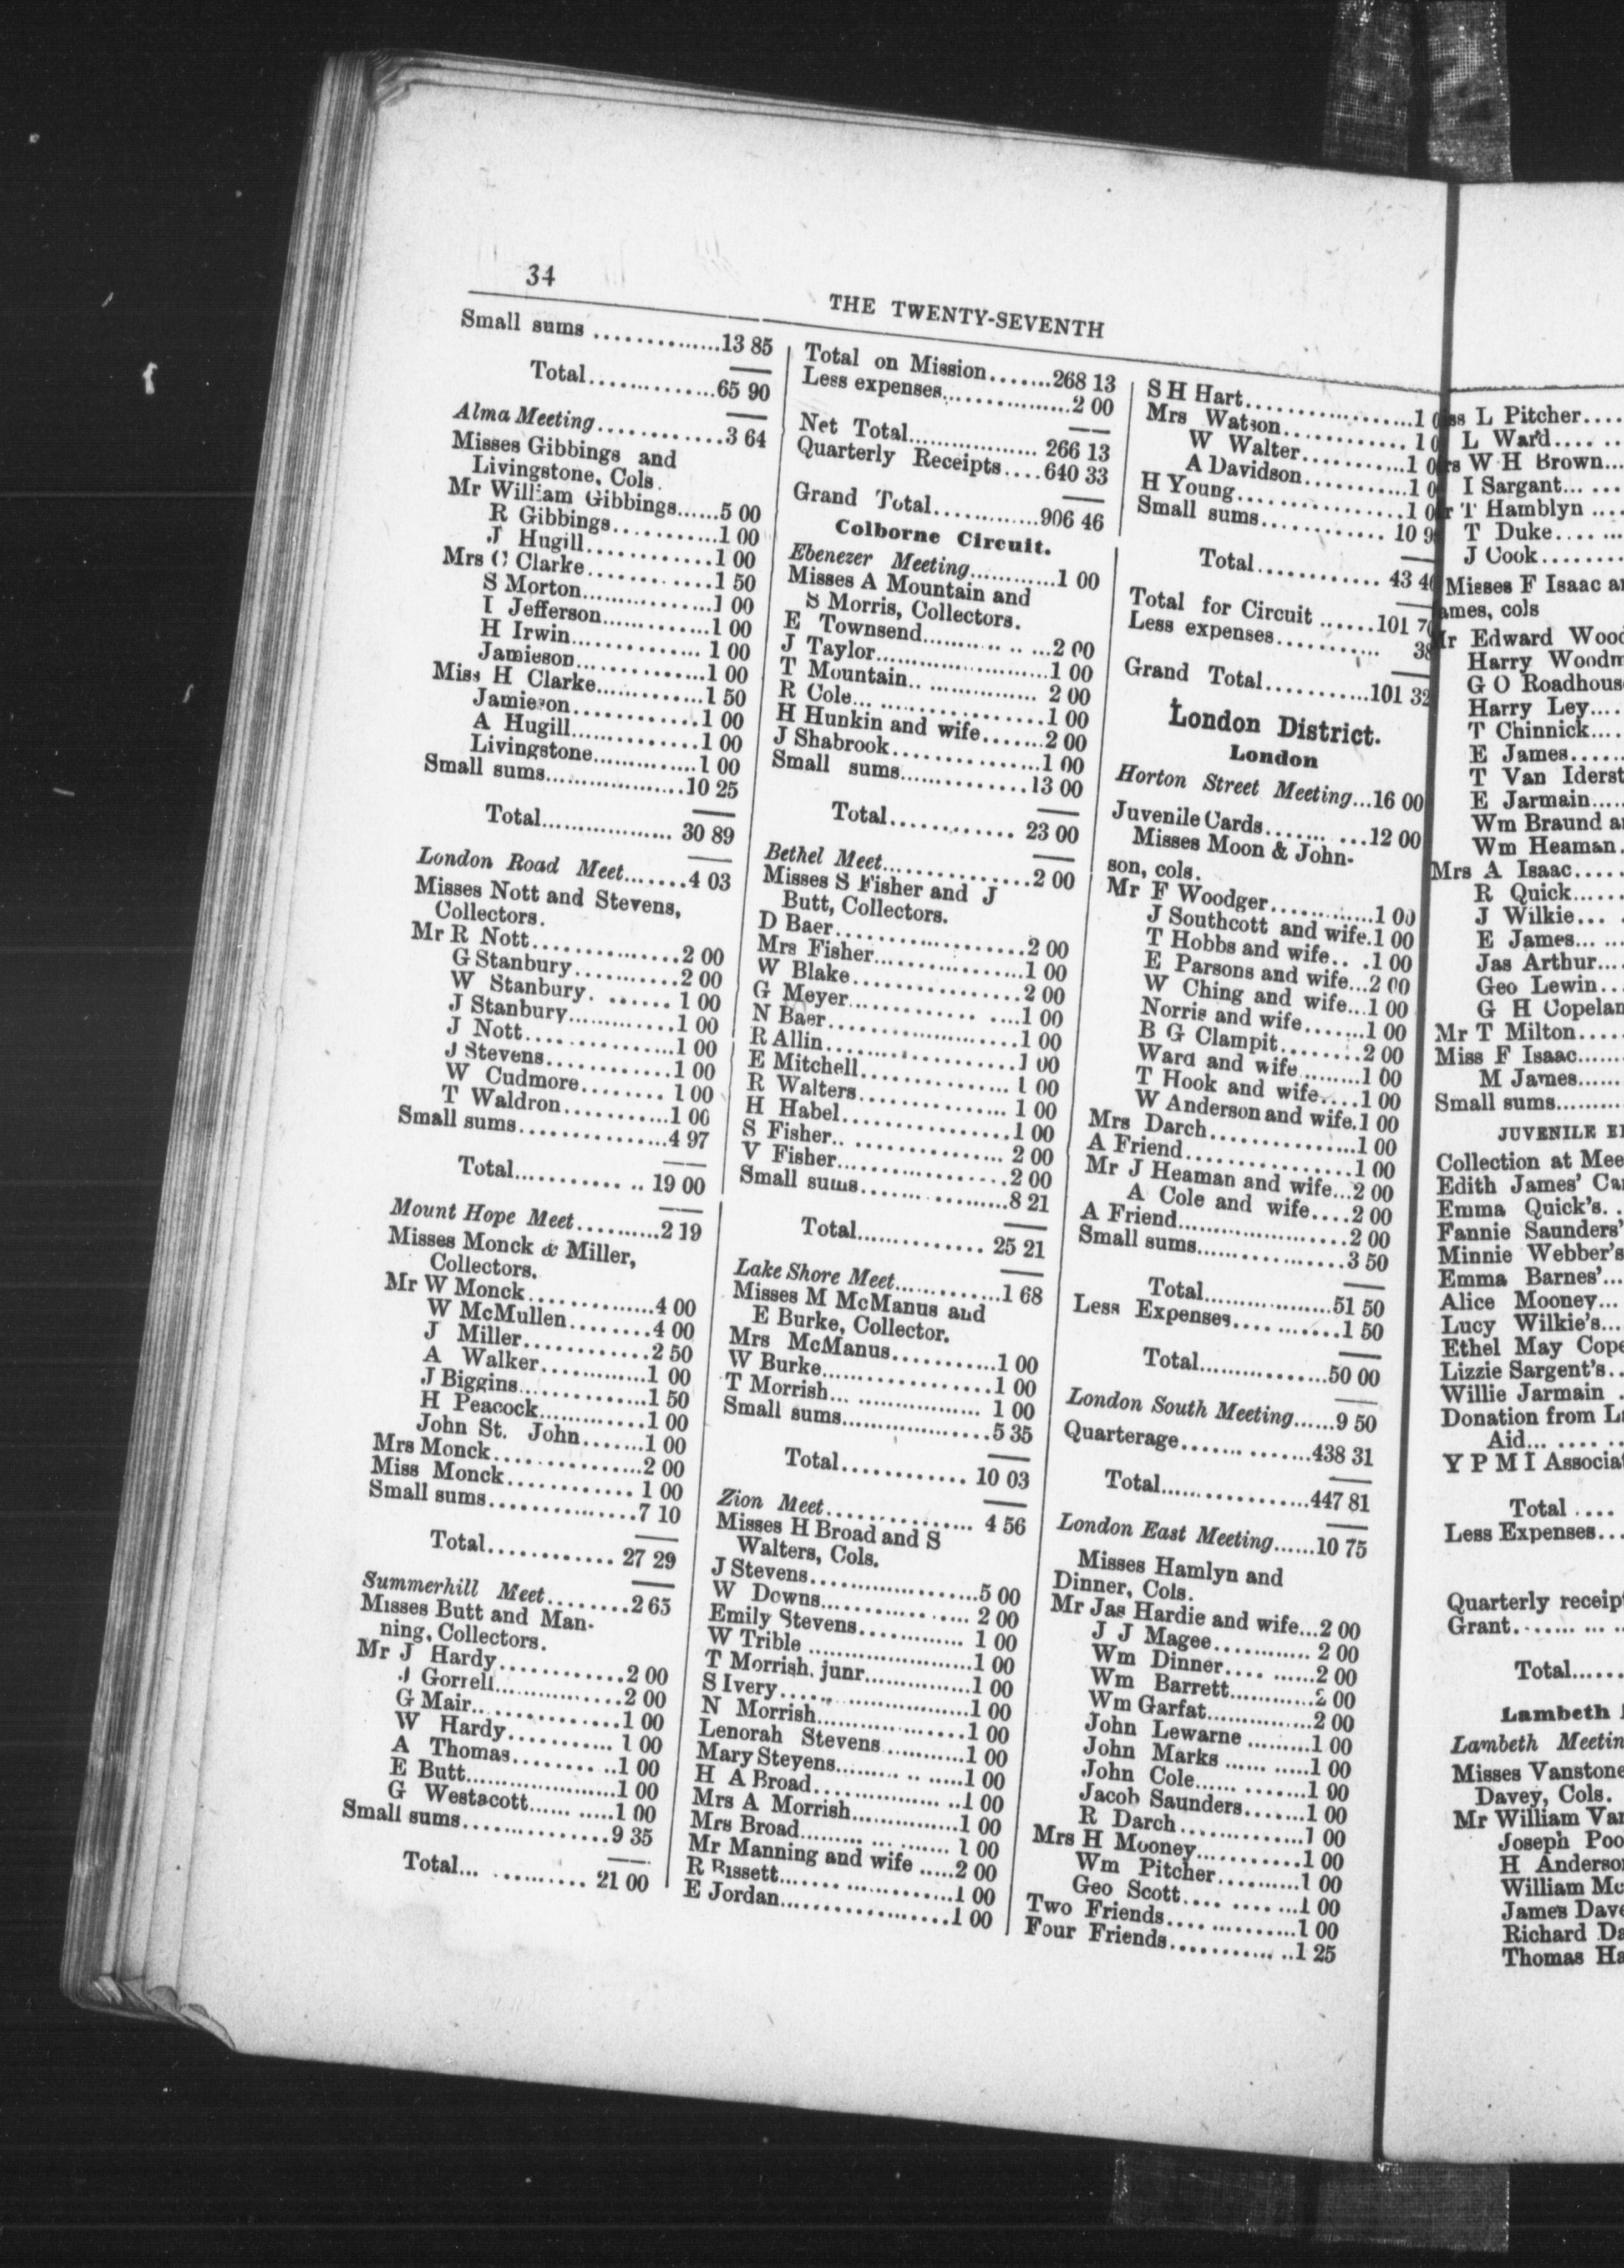 34
THE TWENTY-SEVENTH
Small sums ..............13 85
Total..............65 90
Alma Meeting.............3 64
Misses Gibbings and
Livingstone, Cols.
Mr William Gibbings......5 00
R Gibbings............1 00
J Hugill.............1 00
Mrs C Clarke.............1 50
S Morton...............1 00
I Jefferson.............1 00
H Irwin............... 1 00
Jamieson..............1 00
Miss H Clarke............1 50
Jamieson.............1 00
A Hugill..............1 00
Livingstone..............1 00
Small sums.................10 25
Total................. 30 89
London Road Meet.......4 03
Misses Nott and Stevens,
Collectors.
Mr R Nott...............2 00
G Stanbury...........2 00
W Stanbury. ....... 1 00
J Stanbury.............1 00
J Nott.................1 00
J Stevens..............1 00
W Cudmore......... 1 00
T Waldron...........1 00
Small sums................4 97
Total............. .. 19 00
Mount Hope Meet.........2 19
Misses Monck & Miller,
Collectors.
Mr W Monck..............4 00
W McMullen.........4 00
J Miller..............2 50
A Walker............1 00
J Biggins..............1 50
H Peacock............1 00
John St. John.......1 00
Mrs Monck................2 00
Miss Monck............. 1 00
Small sums................7 10
Total............. 27 29
Summerhill Meet.........2 65
Misses Butt and Man-
ning, Collectors.
Mr J Hardy.............2 00
J Gorrell..............2 00
G Mair.................1 00
W Hardy........... 1 00
A Thomas...........1 00
E Butt.................1 00
G Westacott...... .....1 00
Small sums................9 35
Total... .......... 21 00
Total on Mission.......268 13
Less expenses................2 00
Net Total................ 266 13
Quarterly Receipts....640 33
Grand Total.............906 46
Colborne Circuit.
Ebenezer Meeting............1 00
Misses A Mountain and
S Morris, Collectors.
E Townsend.......... .. .. ...2 00
J Taylor......................1 00
T Mountain.. ............... 2 00
R Cole... .....................1 00
H Hunkin and wife.......2 00
J Shabrook..................1 00
Small sums...............13 00
Total.............. 23 00
Bethel Meet..................2 00
Misses S Fisher and J
Butt, Collectors.
D Baer......................2 00
Mrs Fisher..................1 00
W Blake....................2 00
G Meyer............... .. ....1 00
N Baer.......................1 00
R Allin......................1 00
E Mitchell.................. 1 00
R Walters.................. 1 00
H Habel.....................1 00
S Fisher.. .................. 2 00
V Fisher....................2 00
Small sums..................8 21
Total.............. 25 21
Lake Shore Meet.............1 68
Misses M McManus and
E Burke, Collector.
Mrs McManus............1 00
W Burke....................1 00
T Morrish... ............... 1 00
Small sums.................5 35
Total.............. 10 03
Zion Meet................. 4 56
Misses H Broad and S
Walters, Cols.
J Stevens....................5 00
W Downs................. 2 00
Emily Stevens............. 1 00
W Trible ....................1 00
T Morrish, junr.............1 00
S Ivery.......................1 00
N Morrish..................1 00
Lenorah Stevens...........1 00
Mary Steyens......... .. ......1 00
H A Broad................. ..1 00
Mrs A Morrish.............1 00
Mrs Broad......... ... ....... 1 00
Mr Manning and wife .....2 00
R Bissett.....................1 00
E Jordan....................1 00
S H Hart...................1
Mrs Watson.............1
W Walter............1
A Davidson...........1
H Young....................1
Small sums............. 10
Total............. 43
Total for Circuit ......101
Less expenses...........
Grand Total............101 32
London District.
London
Horton Street Meeting...16 00
Juvenile Cards....... ...12 00
Misses Moon & John-
son, cols.
Mr F Woodger.............1 00
J Southcott and wife.1 00
T Hobbs and wife.. .1 00
E Parsons and wife...2 00
W Ching and wife...1 00
Norris and wife.......1 00
B G Clampit.........2 00
Ward and wife.........1 00
T Hook and wife....1 00
W Anderson and wife.1 00
Mrs Darch................1 00
A Friend...................1 00
Mr J Heaman and wife...2 00
A Cole and wife....2 00
A Friend....................2 00
Small sums.................3 50
Total..................51 50
Less Expenses.............1 50
Total...............50 00
London South Meeting......9 50
Quarterage....... .......438 31
Total...................447 81
London East Meeting......10 75
Misses Hamlyn and
Dinner, Cols.
Mr Jas Hardie and wife...2 00
J J Magee........... 2 00
Wm Dinner.... ......2 00
Wm Barrett............2 00
Wm Garfat...............2 00
John Lewarne ..........1 00
John Marks ...... .....1 00
John Cole...... ........1 00
Jacob Saunders.......1 00
R Darch...............1 00
Mrs H Mooney...........1 00
Wm Pitcher...........1 00
Geo Scott.... .... ...1 00
Two Friends.... ..........1 00
Four Friends........... ..1 25
L Pitcher....
L Ward.... ...
W H Brown...
I Sargant... ...
T Hamblyn ....
T Duke.... ...
J Cook........
Misses F Isaac
cols
Edward
Harry
G O
Harry Ley....
T Chinnick....
E James......
T Van
E Jarmain.....
Wm Braund
Wm Heaman.
Mrs A Isaac.....
R Quick......
J Wilkie... .
E James... ...
Jas Arthur....
Geo Lewin...
G H
Mr T Milton.....
Miss F Isaac......
M James......
Small sums.........
JUVENILE
Collection at
Edith James'
Emma Quick's. .
Fannie Saunders'
Minnie Webber's
Emma Barnes'...
Alice Mooney...
Lucy Wilkie's...
Ethel May
Lizzie Sargent's..
Willie Jarmain .
Donation from
Aid... ......
Y P M I
Total ....
Less Expenses...
Quarterly
Grant........ ... ..
Total......
Lambeth
Lambeth
Misses
Davey, Cols.
Mr William
Joseph
H
William
James
Richard
Thomas